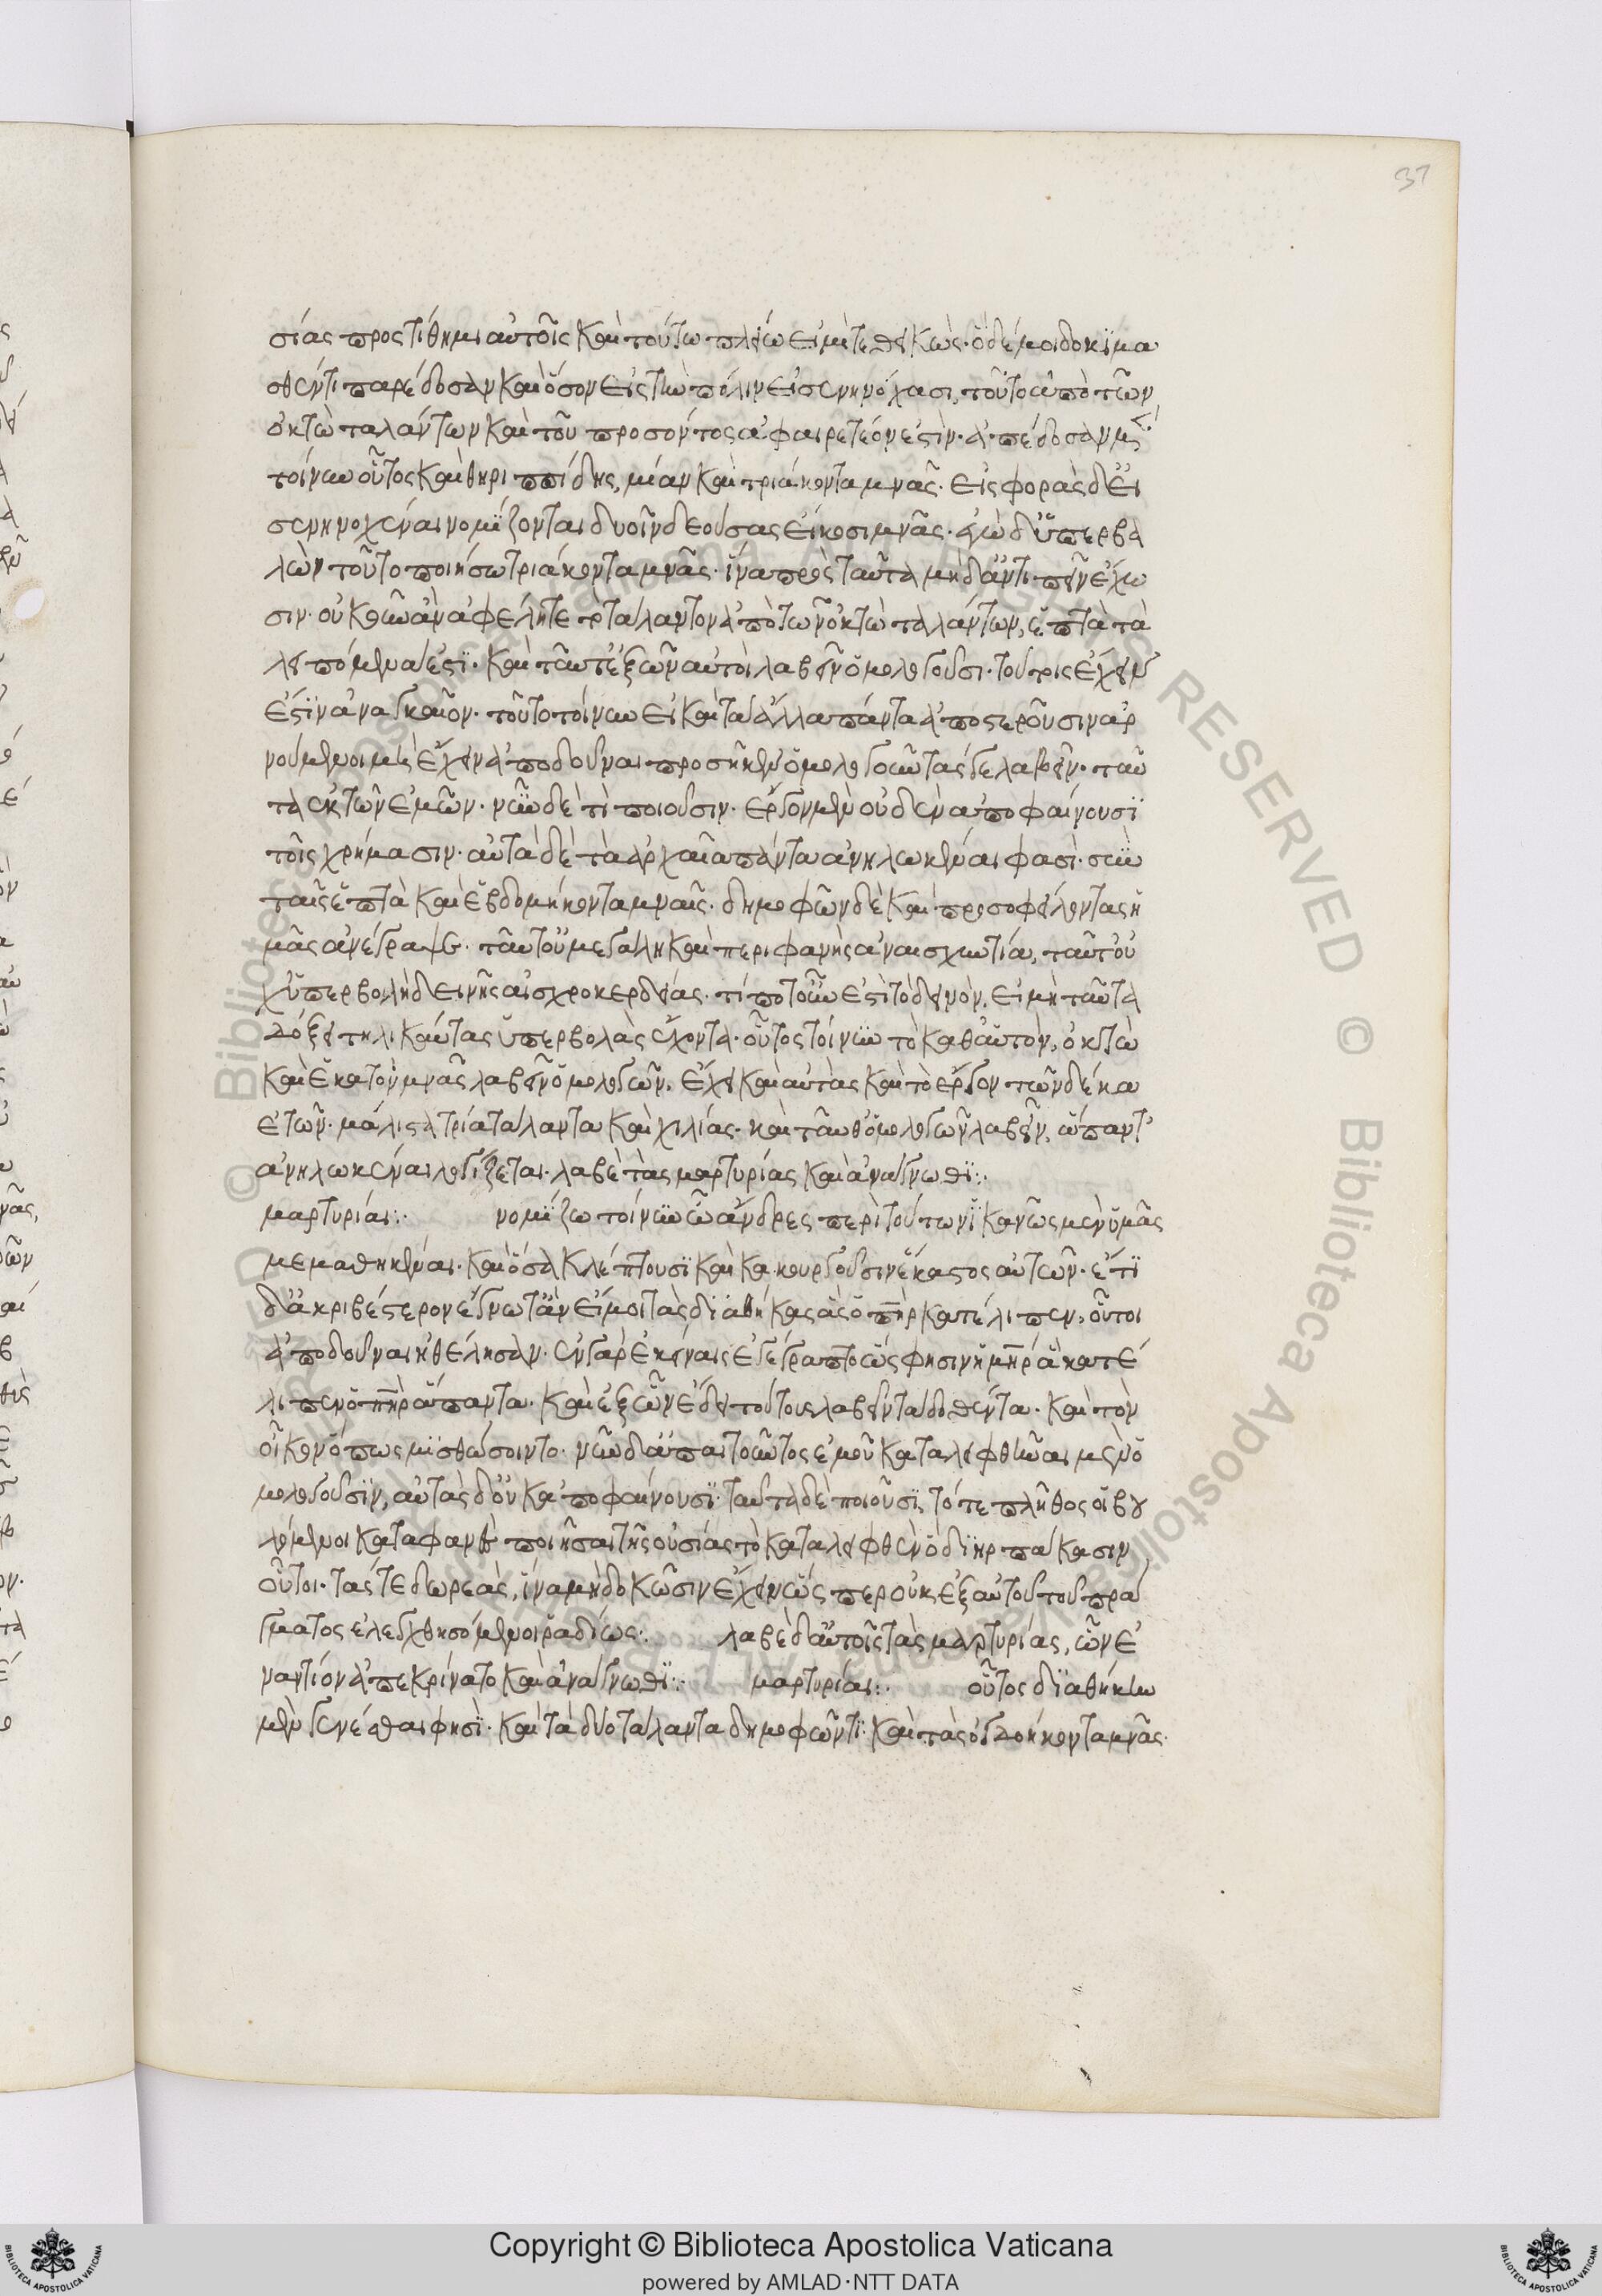 37
σίας προστίθημι αὐτοῖς καὶ τούτω πλείω εἰμὶ τεθεικώς· ὃ δέ μοι δοκιμα
σθέντι παρέδοσαν καὶ ὅσον εἰς τὴν πόλιν εἰσενηνόχασι, τοῦτο ἀπὸ τῶν
ὀκτὼ ταλάντων καὶ τοῦ προσόντος ἀφαιρετέον ἐστίν· ἀπέδοσαν μὲν
τοίνυν οὗτος καὶ θηριππίδης, μίαν καὶ τριάκοντα μνᾶς· εἰσφορὰς δ' εἰ
σενηνοχέναι νομίζονται δυοῖν δεούσας εἴκοσι μνᾶς· ἐγὼ δ' ὑπερβα
λὼν τοῦτο ποιήσω τριάκοντα μνᾶς· ἵνα πρὸς ταῦτα μηδ' ἀντιπεῖν ἔχω
σιν· οὐκοῦν ἂν ἀφέλητε τὸ τάλαντον ἀπὸ τῶν ὀκτὼ ταλάντων, ἑπτὰ τὰ
λειπόμενά ἐστι· καὶ ταῦτ' ἐξ ὧν αὐτοὶ λαβεῖν ὁμολογοῦσι· τούτοις ἔχειν
ἐστὶν ἀναγκαῖον· τοῦτο τοίνυν εἰ καὶ τἄλλα πάντα ἀποστεροῦσιν ἀρ
νούμενοι μὴ ἔχειν ἀποδοῦναι προσῆκεν ὁμολογοῦντάς γε λαβεῖν· ταῦ
τα ἐκ τῶν ἐμῶν· νῦν δὲ τί ποιοῦσιν· ἔργον μὲν οὐδὲν ἀποφαίνουσι
τοῖς χρήμασιν· αὐτὰ δὲ τὰ ἀρχαῖα πάντα ἀνηλωκέναι φασί· σὺν
ταῖς ἑπτὰ καὶ ἑβδομήκοντα μναῖς· δημοφῶν δὲ καὶ προσοφείλοντας ἡ
μᾶς ἀνέγραψε· ταῦτ' οὐ μεγάλη καὶ περιφανὴς ἀναισχυντία, ταῦτ' οὐ
χ' ὑπερβολὴ δεινῆς αἰσχροκερδείας· τί ποτ' οὖν ἐστὶ τὸ δεινόν, εἰ μὴ ταῦτα
δόξει τηλικαύτας ὑπερβολὰς ἔχοντα· οὗτος τοίνυν τὸ καθ' αὑτόν, ὀκτὼ
καὶ ἑκατὸν μνᾶς λαβεῖν ὁμολογῶν, ἔχει καὶ αὐτὰς καὶ τὸ ἔργον τῶν δέκα
ἐτῶν· μάλιστα τρία τάλαντα καὶ χιλίας· καὶ ταῦθ' ὁμολογῶν λαβεῖν, ἅπαντ'
ἀνηλωκέναι λογίζεται· λαβὲ τὰς μαρτυρίας καὶ ἀνάγνωθι:·
μαρτυρίαι:· νομίζω τοίνυν ὦ ἄνδρες περὶ τούτων ἱκανῶς μὲν ὑμᾶς
μεμαθηκέναι· καὶ ὅσα κλέπτουσι καὶ κακουργοῦσιν ἕκαστος αὐτῶν· ἔτι
δ' ἀκριβέστερον ἔγνωτ' ἂν εἴ μοι τὰς διαθήκας ἃς ὁ πηρ κατέλιπεν, οὗτοι
ἀποδοῦναι ἠθέλησαν· ἐν γὰρ ἐκείναις ἐγέγραπτο ὥς φησιν ἡ μηρ ἃ κατέ
λιπεν ὁ πηρ ἅπαντα· καὶ ἐξ ὧν ἔδει τούτους λαβεῖν τὰ δοθέντα· καὶ τὸν
οἶκον ὅπως μισθώσοιντο· νῦν δ' ἀπαιτοῦντος ἐμοῦ καταλειφθῆναι μὲν ὁ
μολογοῦσιν, αὐτὰς δ' οὐκ ἀποφαίνουσι· ταῦτα δὲ ποιοῦσι, τό τε πλῆθος οὐ βου
λόμενοι καταφανὲς ποιῆσαι τῆς οὐσίας τὸ καταλειφθὲν ὃ διηρπάκασιν
οὗτοι· τάς τε δωρεάς, ἵνα μὴ δοκῶσιν ἔχειν ὥσπερ οὐκ ἐξ αὐτοῦ τοῦ πράγ
γματος ἐλεγχθησόμενοι ῥαδίως:· λαβὲ δ' αὐτοῖς τὰς μαρτυρίας, ὧν ἐ
ναντίον ἀπεκρίνατο καὶ ἀνάγνωθι:· μαρτυρίαι:· οὗτος διαθήκην
μὲν γενέσθαι φησί· καὶ τὰ δύο τάλαντα δημοφῶντι· καὶ τὰς ὀγδοήκοντα μνᾶς·
Copyright © Biblioteca Apostolica Vaticana
powered by AMLAD·NTT DATA